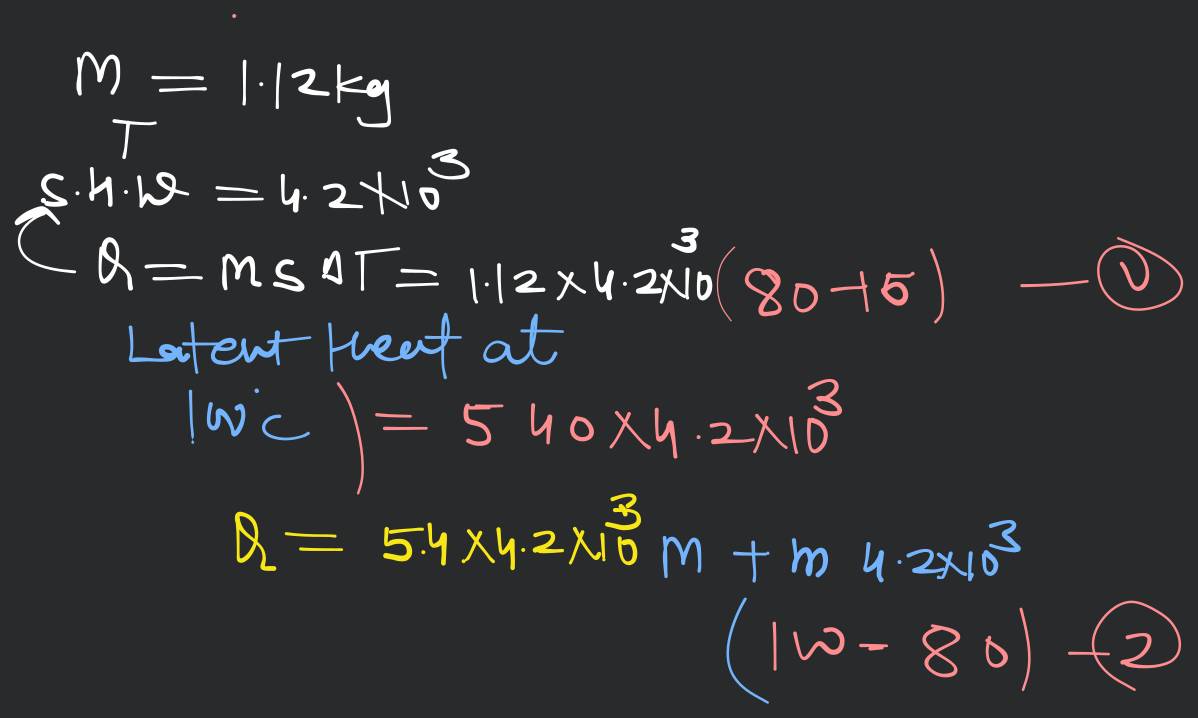 M = 1.12kg
T
S.H.W = 4.2×10³
Q = MSΔT = 1.12×4.2×10³(80-15) — ①
Latent Heat at
100°C ) = 540×4.2×10³
Q = 5.4×4.2×10³ M + m 4.2×10³
(100 - 80) - ②